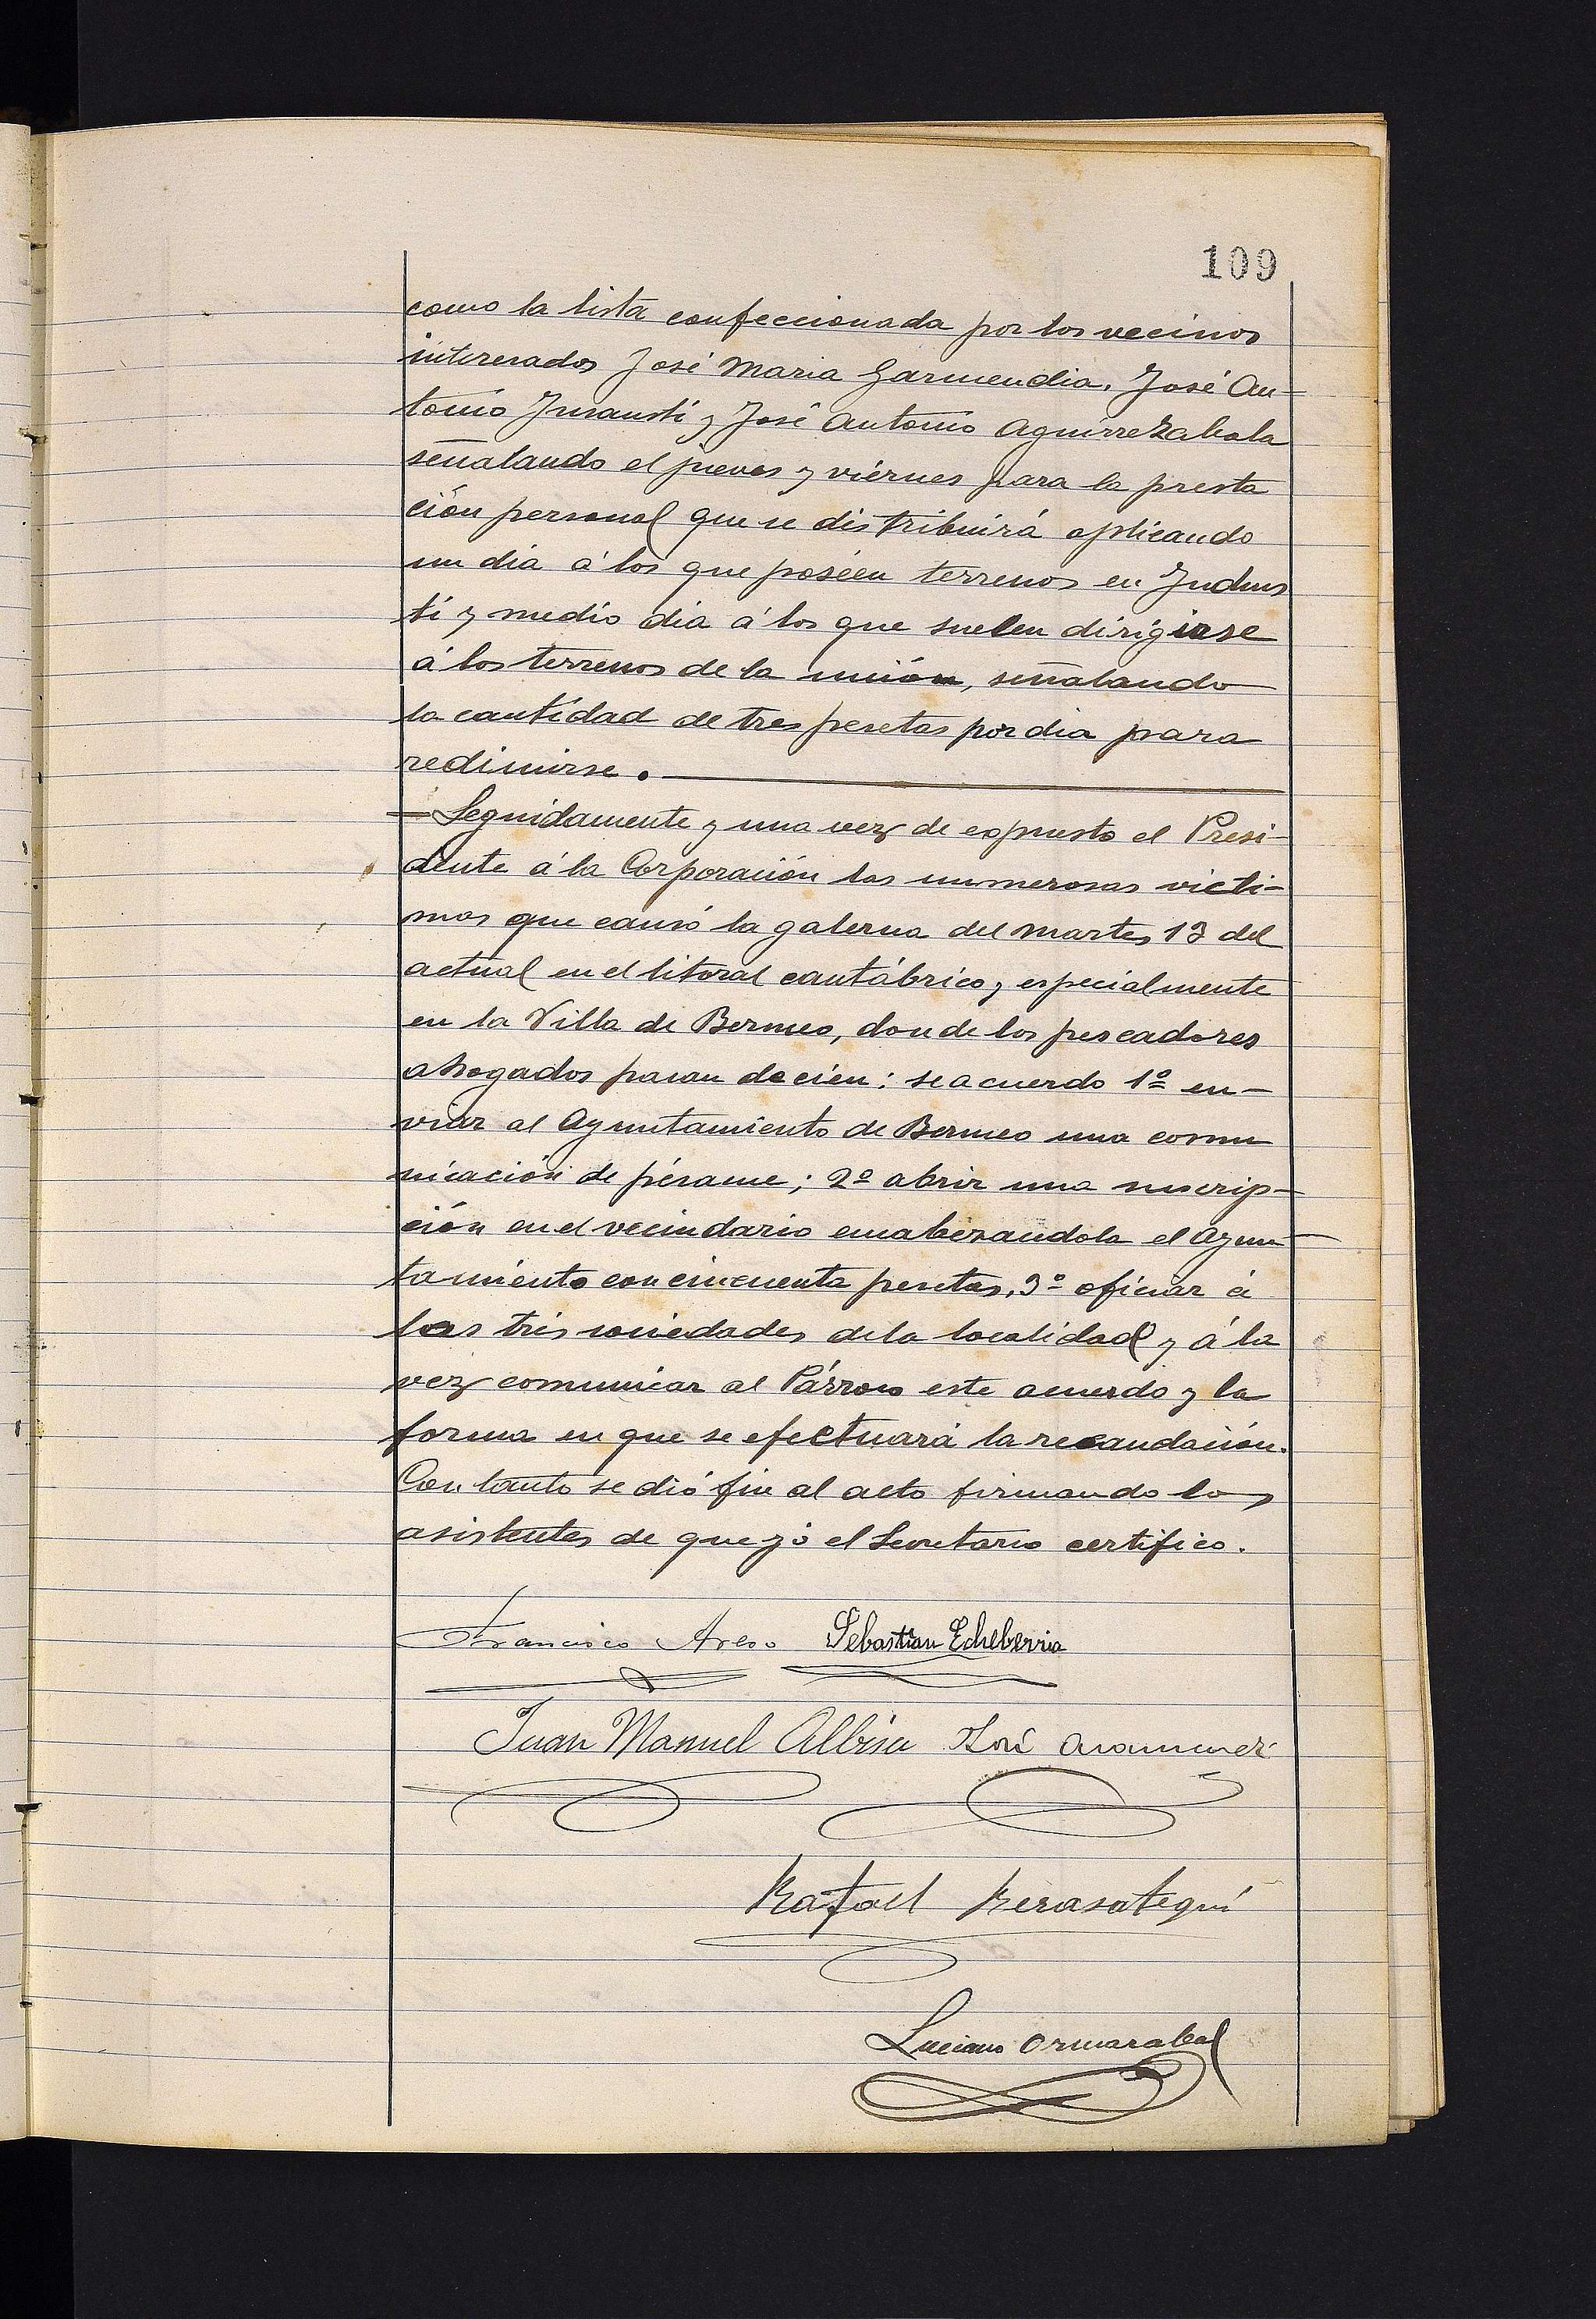 109
como la lista confeccionada por los vecinos
interesados José Maria Garmendia. José An-
tonio Insausti y José Antonio Aguirrezabala
señalando el jueves y viérnes para la presta
ción personal que se distribuirá aplicando
un dia á los que poséen terrenos en
ti y medio dia á los que suelen dirigirse
á los terrenos de la unión, señalando
la cantidad de tres pesetas por dia para
redimirse.
Seguidamente y una vez de expuesto el Presi-
dente á la Corporación las numerosas victi-
mas que causó la galerna del martes 13 del
actual en el litoral cantábrico, especialmente
en la Villa de Bermeo, donde los pescadores
ahogados pasan de cien: se acuerdo 1º en-
viar al Ayuntamiento de Bermeo una comu
nicación de pésame; 2º abrir una suscrip-
ción en el vecindario encabezandola el Ayun-
tamiento con cincuenta pesetas, 3º oficiar á
las tres sociedades de la localidad y á la
vez comunicar al Párroco este acuerdo y la
forma en que se efectuará la recaudación.
Con tanto se dió fin al acto firmando los
asistentes de que yó el Secretario certifico.
Francisco Areso Sebastian Echeberria
Juan Manuel Albisu José
Rafael Berasategui
Luciano Ormazabal